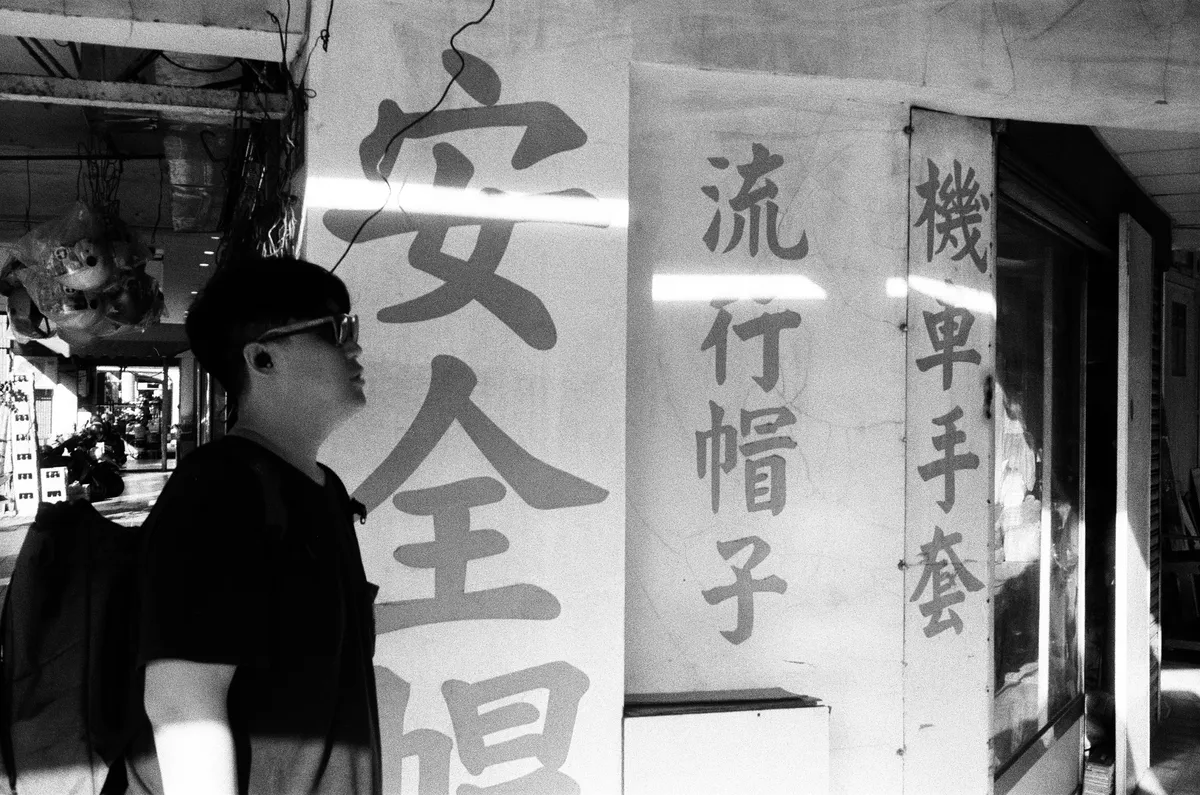 安全帽
流行帽子
機車手套